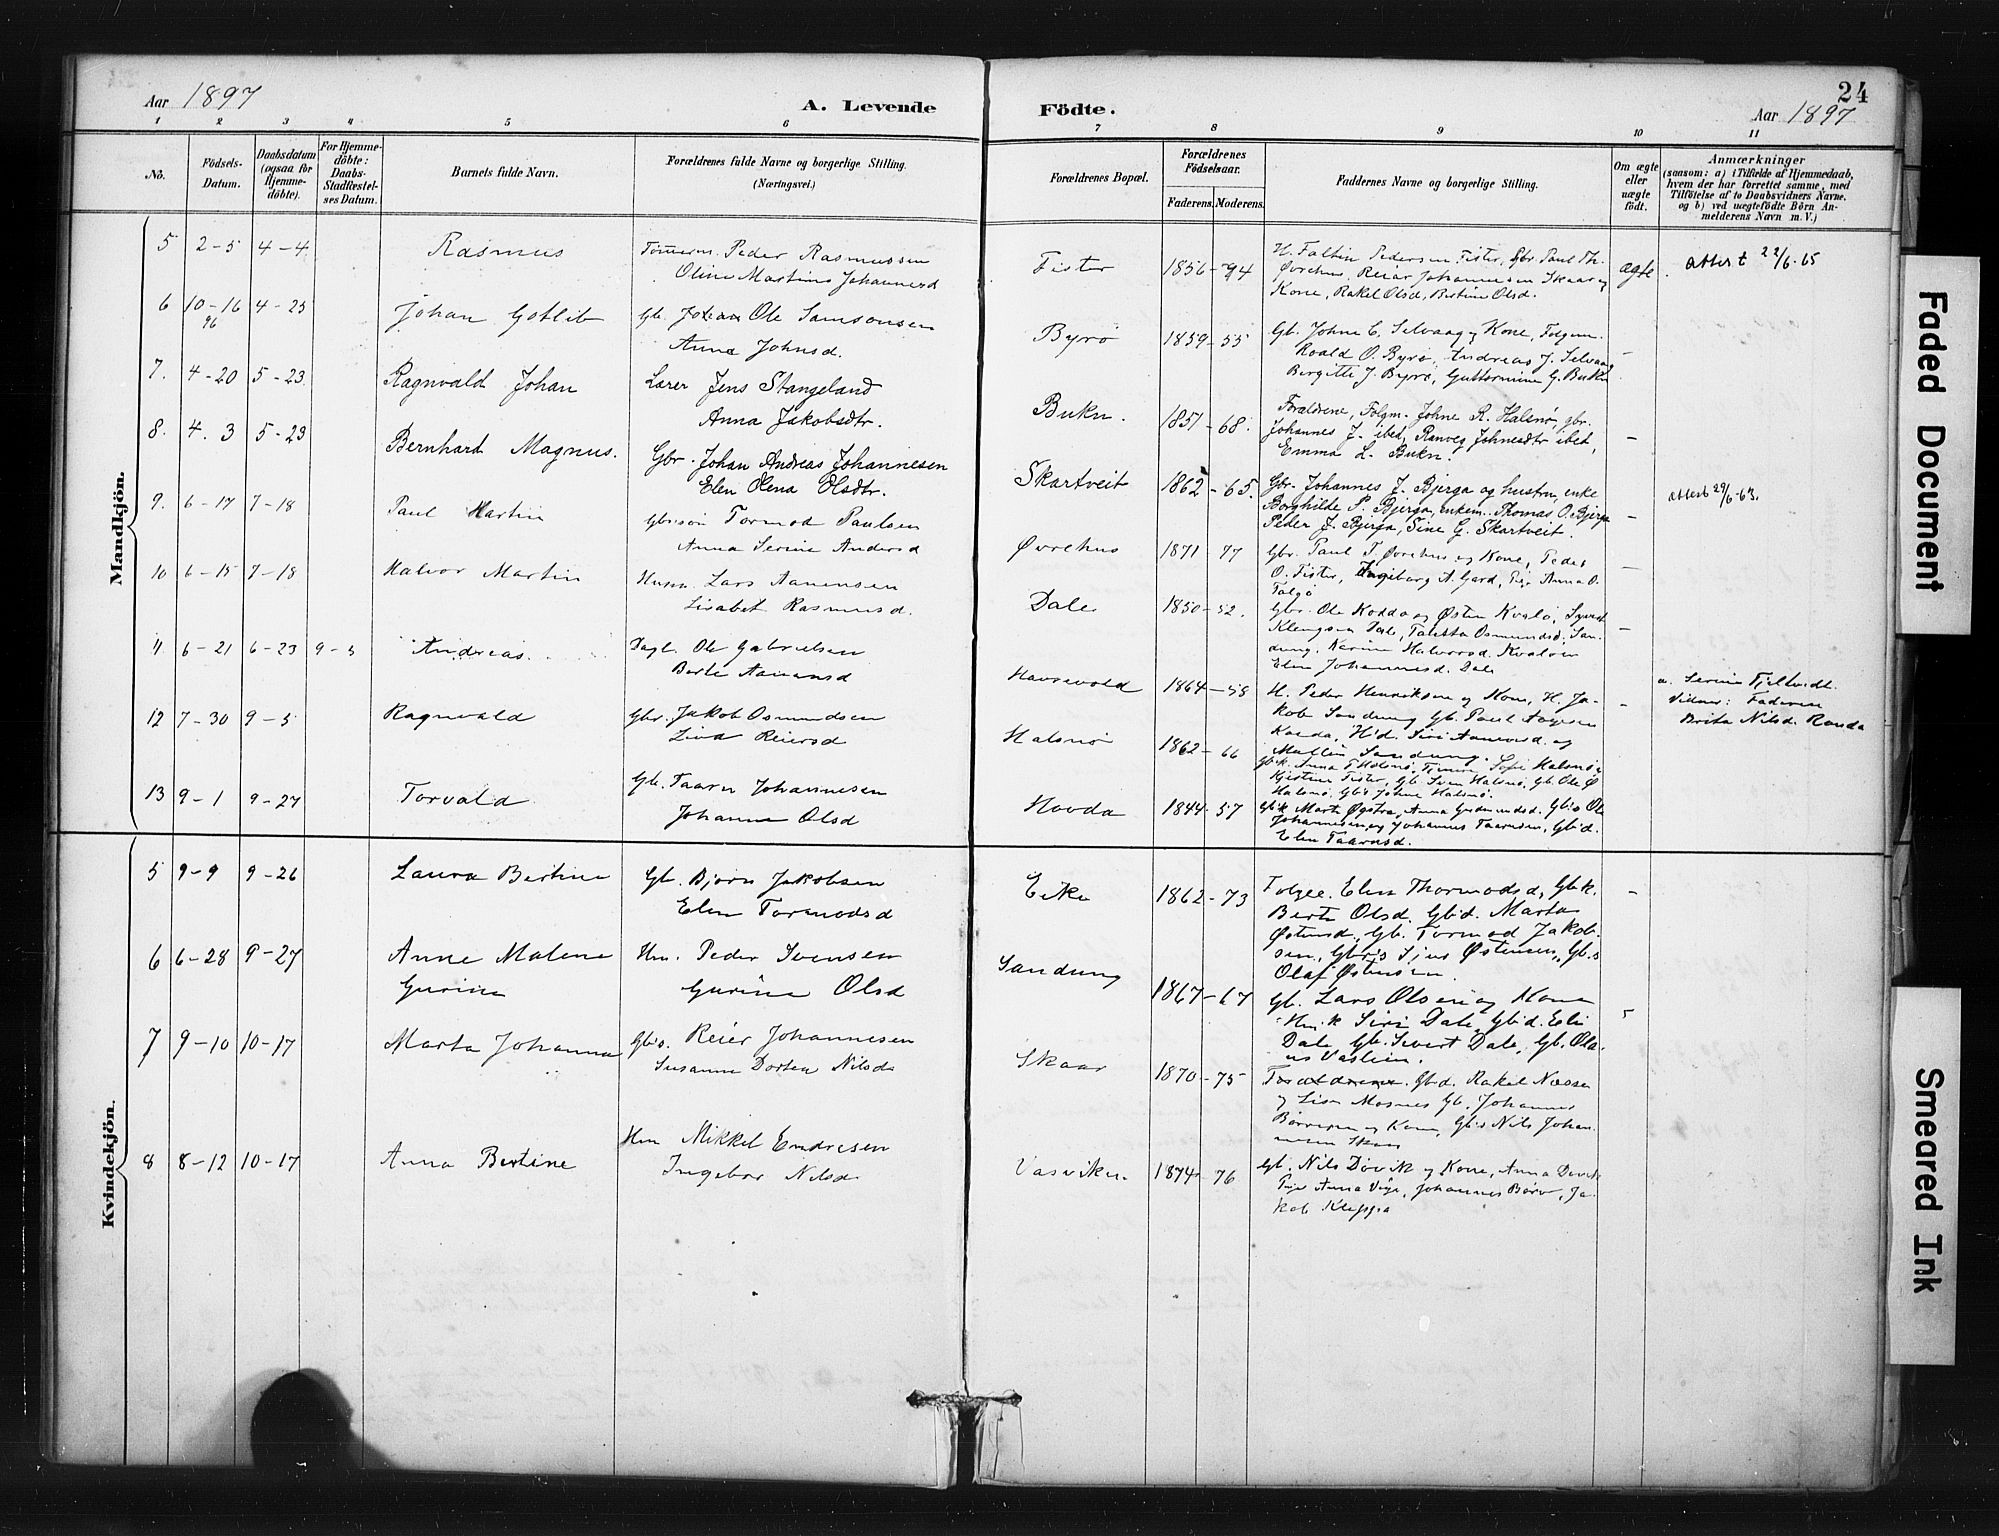 24
Aar 1897
A. Levende Födte.
Aar 1897
1 2 3 4 5 6 7 8 9 10 11
No.
Födsels-
Datum.
Daabsdatum
(ogsaa for
Hjemme-
döbte).
For Hjemme-
döbte:
Daabs-
Stadfæstel-
ses Datum.
Barnets fulde Navn.
Forældrenes fulde Navne og borgerlige Stilling.
(Næringsvei.)
Forældrenes Bopæl.
Forældrenes
Födselsaar.
Faderens. Moderens.
Faddernes Navne og borgerlige Stilling.
Om ægte
eller
uægte
födt.
Anmærkninger
(saasom: a) i Tilfælde af Hjemmedaab,
hvem der har forrettet samme, med
Tilföielse af to Daabsvidners Navne,
og b) ved uægtefödte Börn An-
melderens Navn m. V.)
Mandkjön.
5 2-5 4-4 Rasmus
Peder Rasmussen
Oline Martine Johannesd
Fister 1856-
H. Faltin Pedersen Fister, Gbr. Paul Th.
Øvrehus, Reiar Johannesen Skaar og
Kone, Rakel Olsd, Bertine Olsd.
ægte
attest 22/6.65
6 10-16 4-25 Johan Gotlib
96
Gb. Johan Ole Samsonsen
Anna Johnsd.
Byrø 1859-55
Gb. Johne E. Selvaag og Kone, Folgem.
Roald O. Byrø, Andreas J. Selvaag
Birgitte J. Byrø, Guttormine G. Bukn
-
7. 4-20 5-23 Ragnvald Johan
Lærer Jens Stangeland
Anna Jakobsdtr.
Bukn. 1851-68.
Forældrene, Folgm. Johne R. Halsnø, gbr.
Johannes J. ibed, Ranveg Johnsdtr ibed,
Emma L. Bukn.
-
8. 4. 3 5-23 Bernhard Magnus.
Gbr. Johan Andreas Johannesen
Elen Olena Olsdtr.
Skartveit 1862-65.
Gbr. Johannes J. Bjerga og hustru, enke
Borghilde P. Bjerga, enkem. Thomas O. Bjerga
Peder J. Bjerga, Sine G. Skartveit.
-
attest 29/6-63.
9. 6-17 7-18 Paul Martin
Gbrsøn Tormod Paulsen
Anna Serine Andersd
Øvrehus 1871-77
Gbr. Paul T. Øvrehus og Kone, Peder
O. Fister, Ingeborg A. Gard, Pige Anna O.
Talgø
-
10 6-15 7-18 Halvor Martin
Husm. Lars Aanensen
Lisabet Rasmusd.
Dale 1850-52.
Gbr. Ole Kodda og Østen Kvalø, Syvert
Klengsen Dale, Osmundsd. San-
dung, Karine Halvorsd. Kvaløen
Elen Johannesd. Dale
-
11 6-21 6-23 9-5 Andreas
Dagl. Ole Gabrielsen
Berte Aanensd
1864-58
H. Peder Henriksen og Kone, H. Ja-
kob Sandung Gb. Paul Aagesen
Hd. Siri Aanensd. og
Mallin Sandung.
-
a. Serine Fjeltvedt.
Vidner: Faderen
Brita Nilsd. Randa
12 7-30 9-5 Ragnvald
Gbr. Jakob Osmundsen
Lina Reiersd
Halsnø 1862-66
Gbk. Anna Halsnø, Sofie Halsnø,
Kjistine Fister, Gb. Sven Halsnø, Gb. Ole Ø
Halsnø, Gb's Johne Halsnø.
13 9-1 9-27 Torvald
Gb. Taarn Johannesen
Johanne Olsd
Hovda 1844-57
Gbk. Marta Øgstra, Anna Gudmundsd. Gb's Ole
Johannesen og Johannes Taarnsen, Gb.d.
Elen Taarnsd.
Kvindekjön.
5 9-9 9-26 Laura Bertine
Gb. Bjørn Jakobsen
Elen Tormodsd
Eike 1862-73
Folgee. Elen Thormodsd, Gbk.
Berte Olsd. Gbd. Marta
Østensd, Gb. Tormod Jakob-
sen, Gbr's Sjur Østensen, Gb.s
Olaf Østensen.
-
6 6-28 9-27 Anne Malene
Gurine
Hm. Peder Svensen
Gurine Olsd
Sandung 1867-67
Gb. Lars Olsen og Kone
Hm.k Siri Dale, Gb.d. Eli
Dale Gb. Sivert Dale, Gb. Ola-
us Vaslien.
7 9-10 10-17 Marta Johanna
Gb's. Reier Johannesen
Susanne Dortea Nilsd
Skaar 1870-75
Forældrene. Gbd. Rakel Næssen
og Lisa Mosnes Gb. Johannes
Børresen og Kone, Gb's Nils Johan-
nesen Skaar
8 8-12 10-17 Anna Bertine
Hm Mikkel Endresen
Ingebor Nilsd
Vasviken. 1874-76
Gb. Nils Døvik og Kone, Anna Døvik
Pige Anna Viga, Johannes Børø, Ja-
kob Kleppa
Faded Document
Smeared Ink